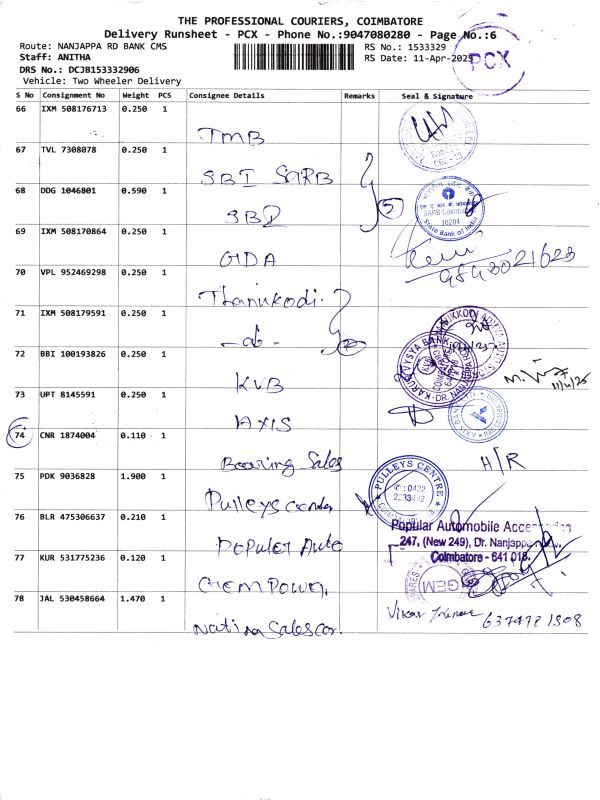 THE PROFESSIONAL COURIERS, COIMBATORE
Delivery Runsheet - PCX - Phone No.:9047080280 - Page No.:6
Route: NANJAPPA RD BANK CMS
RS No.: 1533329
Staff: ANITHA
RS Date: 11-Apr-2025
PCX
DRS No.: DCJB153332906
Vehicle: Two Wheeler Delivery
S No Consignment No Weight PCS Consignee Details Remarks Seal & Signature
66 IXM 508176713 0.250 1
TMB
67 TVL 7308078 0.250 1
SBI SARB
68 DDG 1046801 0.590 1
SBI
SARB Coimbatore
10204
State Bank of India
69 IXM 508170864 0.250 1
GDA
9843021623
70 VPL 952469298 0.250 1
Thanukodi.
71 IXM 508179591 0.250 1
-do-
72 BBI 100193826 0.250 1
KVB
KARUR VYSYA BANK
DR. NANJAPPA
11/4/25
73 UPT 8145591 0.250 1
AXIS
74 CNR 1874004 0.110 1
Bearing Sales
H/R
75 PDK 9036828 1.900 1
Pulleys Centre
PULLEYS CENTRE
76 BLR 475306637 0.210 1
Populer Auto
Popular Automobile Accessories
247, (New 249), Dr. Nanjappa
Coimbatore - 641 018.
77 KUR 531775236 0.120 1
Gem Power.
GEM
78 JAL 530458664 1.470 1
Nation Sales Cor.
6374721508